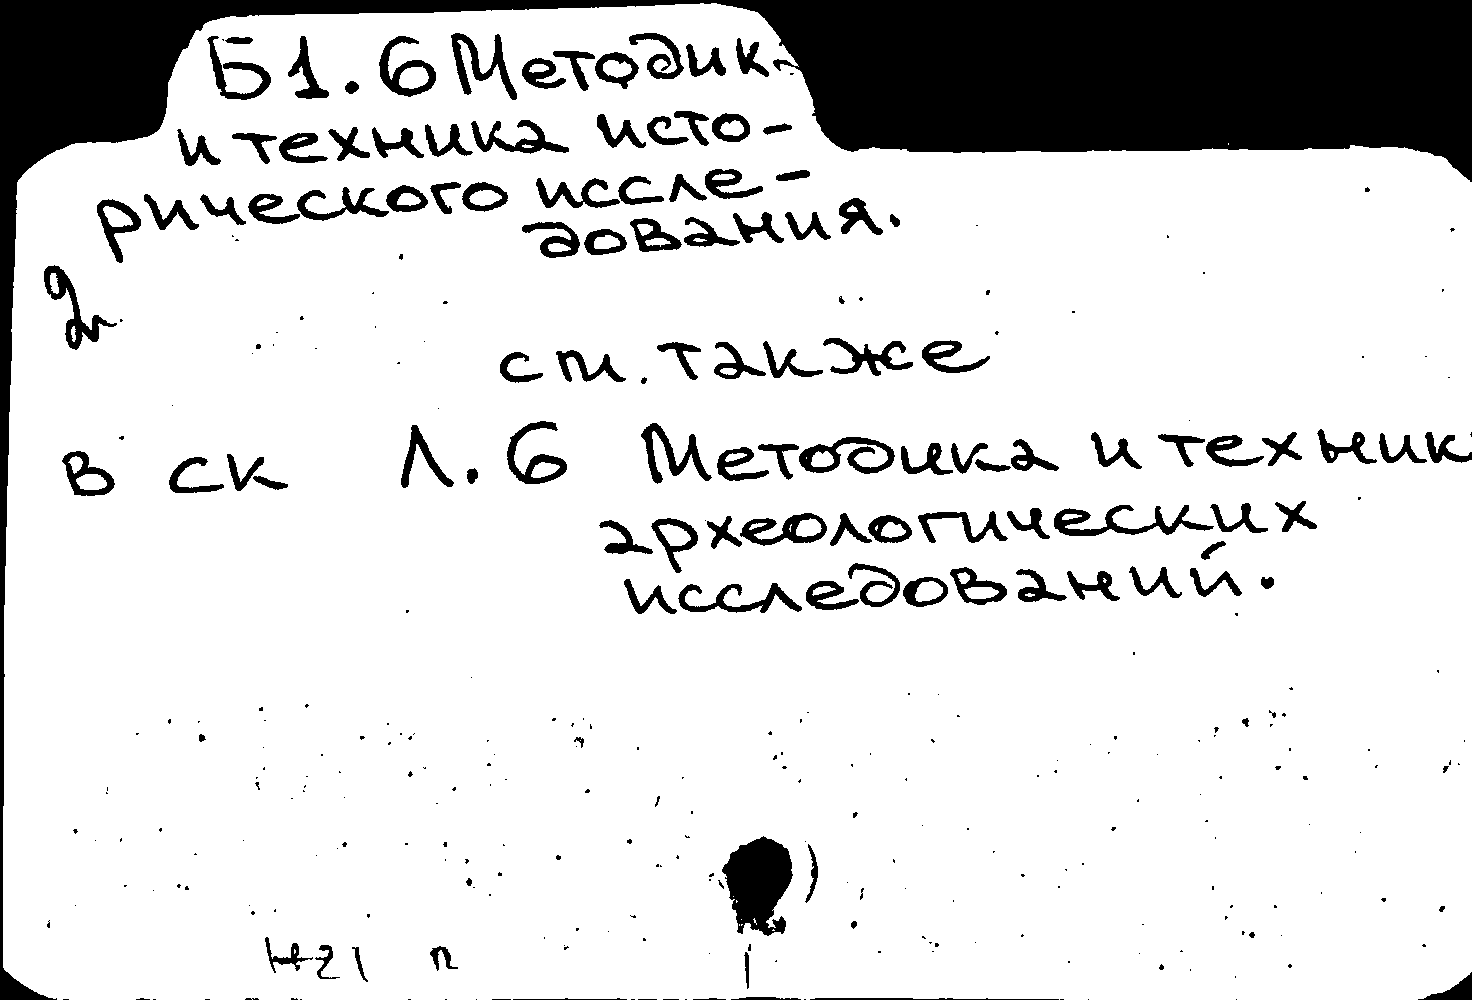 Б1.6 Методика
и техника исто-
рического иссле-
дования.
см. также
в ск Л.6 Методика и техник
археологических
исследований.